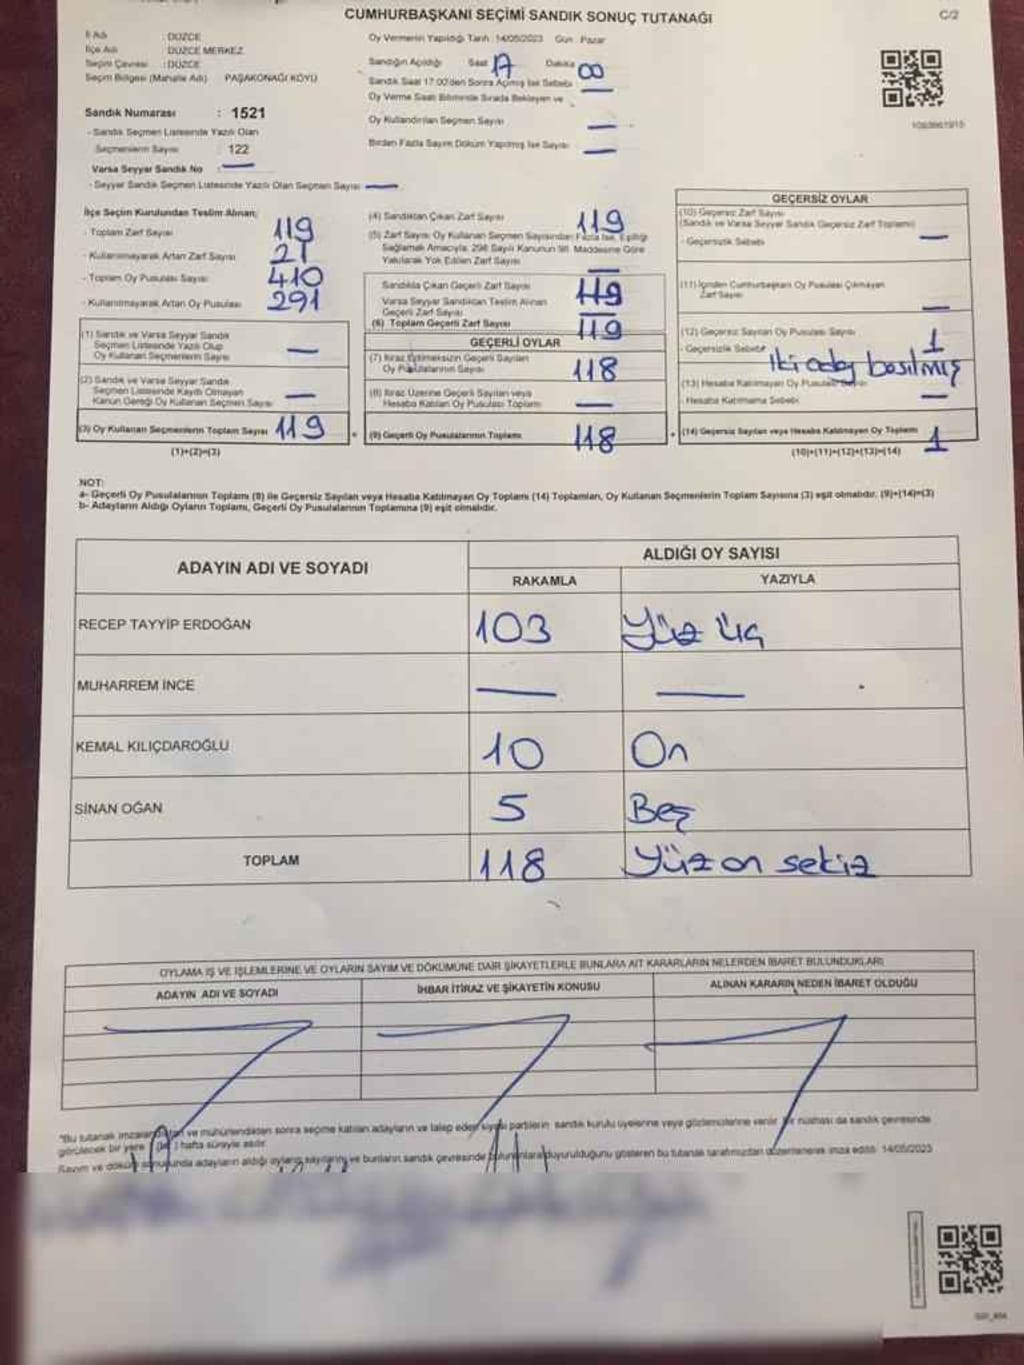 CUMHURBAŞKANI SEÇİMİ SANDIK SONUÇ TUTANAĞI
C/2
İl Adı : DÜZCE
İlçe Adı : DÜZCE MERKEZ
Seçim Çevresi : DÜZCE
Seçim Bölgesi (Mahalle Adı) : PAŞAKONAĞI KÖYÜ
Oy Vermenin Yapıldığı Tarih : 14/05/2023 Gün : Pazar
Sandığın Açıldığı Saat 17 Dakika 00
Sandık Saat 17:00'den Sonra Açılmış İse Sebebi —
Oy Verme Saati Bitiminde Sırada Bekleyen ve
Oy Kullandırılan Seçmen Sayısı —
Birden Fazla Sayım Döküm Yapılmış İse Sayısı —
Sandık Numarası : 1521
- Sandık Seçmen Listesinde Yazılı Olan
Seçmenlerin Sayısı : 122
Varsa Seyyar Sandık No : —
- Seyyar Sandık Seçmen Listesinde Yazılı Olan Seçmen Sayısı —
İlçe Seçim Kurulundan Teslim Alınan;
- Toplam Zarf Sayısı 119
- Kullanılmayarak Artan Zarf Sayısı 21
- Toplam Oy Pusulası Sayısı 410
- Kullanılmayarak Artan Oy Pusulası 291
(1) Sandık ve Varsa Seyyar Sandık
Seçmen Listesinde Yazılı Olup
Oy Kullanan Seçmenlerin Sayısı —
(2) Sandık ve Varsa Seyyar Sandık
Seçmen Listesinde Kayıtlı Olmayan
Kanun Gereği Oy Kullanan Seçmen Sayısı —
(3) Oy Kullanan Seçmenlerin Toplam Sayısı 119
(1)+(2)=(3)
(4) Sandıktan Çıkan Zarf Sayısı 119
(5) Zarf Sayısı Oy Kullanan Seçmen Sayısından Fazla İse, Eşitliği
Sağlamak Amacıyla, 298 Sayılı Kanunun 98. Maddesine Göre
Yakılarak Yok Edilen Zarf Sayısı —
Sandıkta Çıkan Geçerli Zarf Sayısı 119
Varsa Seyyar Sandıktan Teslim Alınan
Geçerli Zarf Sayısı —
(6) Toplam Geçerli Zarf Sayısı 119
GEÇERLİ OYLAR
(7) İtiraz Edilmeksizin Geçerli Sayılan
Oy Pusulalarının Sayısı 118
(8) İtiraz Üzerine Geçerli Sayılan veya
Hesaba Katılan Oy Pusulası Toplamı —
(9) Geçerli Oy Pusulalarının Toplamı 118
GEÇERSİZ OYLAR
(10) Geçersiz Zarf Sayısı
(Sandık ve Varsa Seyyar Sandık Geçersiz Zarf Toplamı)
- Geçersizlik Sebebi —
(11) İçinden Cumhurbaşkanı Oy Pusulası Çıkmayan
Zarf Sayısı —
(12) Geçersiz Sayılan Oy Pusulası Sayısı 1
- Geçersizlik Sebebi İki aday basılmış
(13) Hesaba Katılmayan Oy Pusulası Sayısı
- Hesaba Katılmama Sebebi —
(14) Geçersiz Sayılan veya Hesaba Katılmayan Oy Toplamı 1
(10)+(11)+(12)+(13)=(14)
NOT:
a- Geçerli Oy Pusulalarının Toplamı (9) ile Geçersiz Sayılan veya Hesaba Katılmayan Oy Toplamı (14) Toplamları, Oy Kullanan Seçmenlerin Toplam Sayısına (3) eşit olmalıdır. (9)+(14)=(3)
b- Adayların Aldığı Oyların Toplamı, Geçerli Oy Pusulalarının Toplamına (9) eşit olmalıdır.
ADAYIN ADI VE SOYADI
ALDIĞI OY SAYISI
RAKAMLA YAZIYLA
RECEP TAYYİP ERDOĞAN 103 Yüz Üç
MUHARREM İNCE — —
KEMAL KILIÇDAROĞLU 10 On
SİNAN OĞAN 5 Beş
TOPLAM 118 Yüz on sekiz
OYLAMA İŞ VE İŞLEMLERİNE VE OYLARIN SAYIM VE DÖKÜMÜNE DAİR ŞİKAYETLERLE BUNLARA AİT KARARLARIN NELERDEN İBARET BULUNDUKLARI
ADAYIN ADI VE SOYADI İHBAR İTİRAZ VE ŞİKAYETİN KONUSU ALINAN KARARIN NEDEN İBARET OLDUĞU
"Bu tutanak imzalandıktan ve mühürlendikten sonra seçime katılan adayların ve talep eden siyasi partilerin sandık kurulu üyelerine veya gözlemcilerine verilir. Bir nüshası da sandık çevresinde
görülecek bir yere (bir) hafta süreyle asılır.
Sayım ve döküm sonucunda adayların aldığı oyların sayılarını ve bunların sandık çevresinde bulunanlara duyurulduğunu gösteren bu tutanak tarafımızdan düzenlenerek imza edildi. 14/05/2023